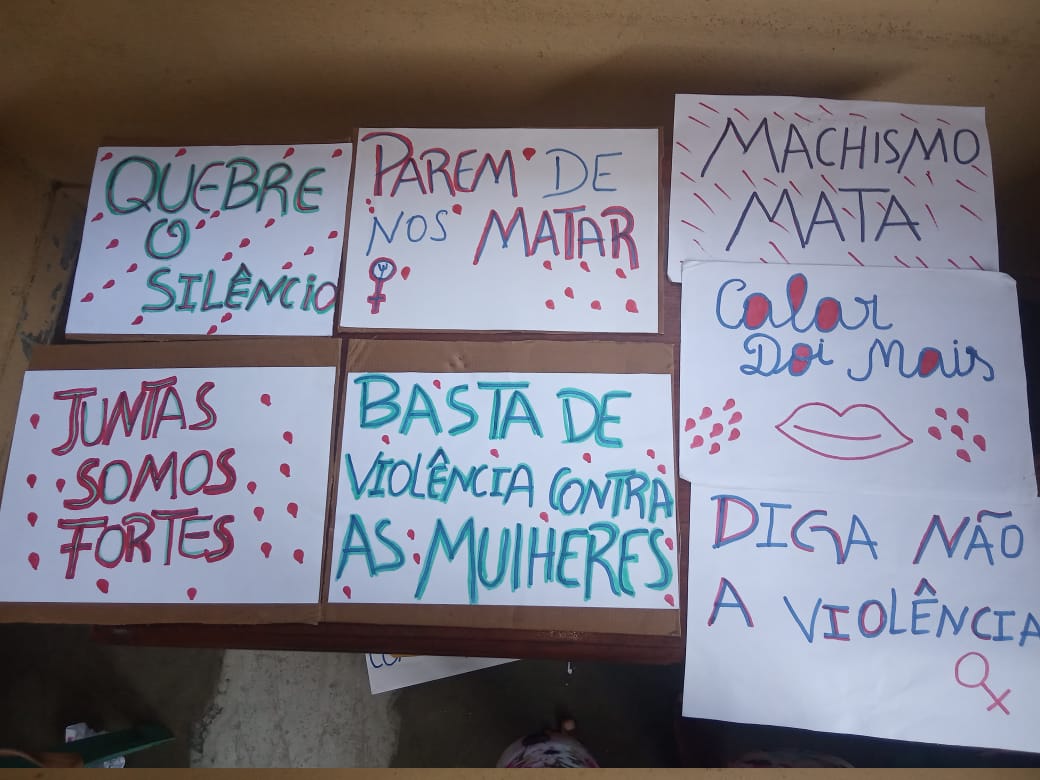 QUEBRE
O
SILÊNCIO
PAREM DE
NOS MATAR
MACHISMO
MATA
Calar
Doi Mais
JUNTAS
SOMOS
FORTES
BASTA DE
VIOLÊNCIA CONTRA
AS MULHERES
DIGA NÃO
A VIOLÊNCIA